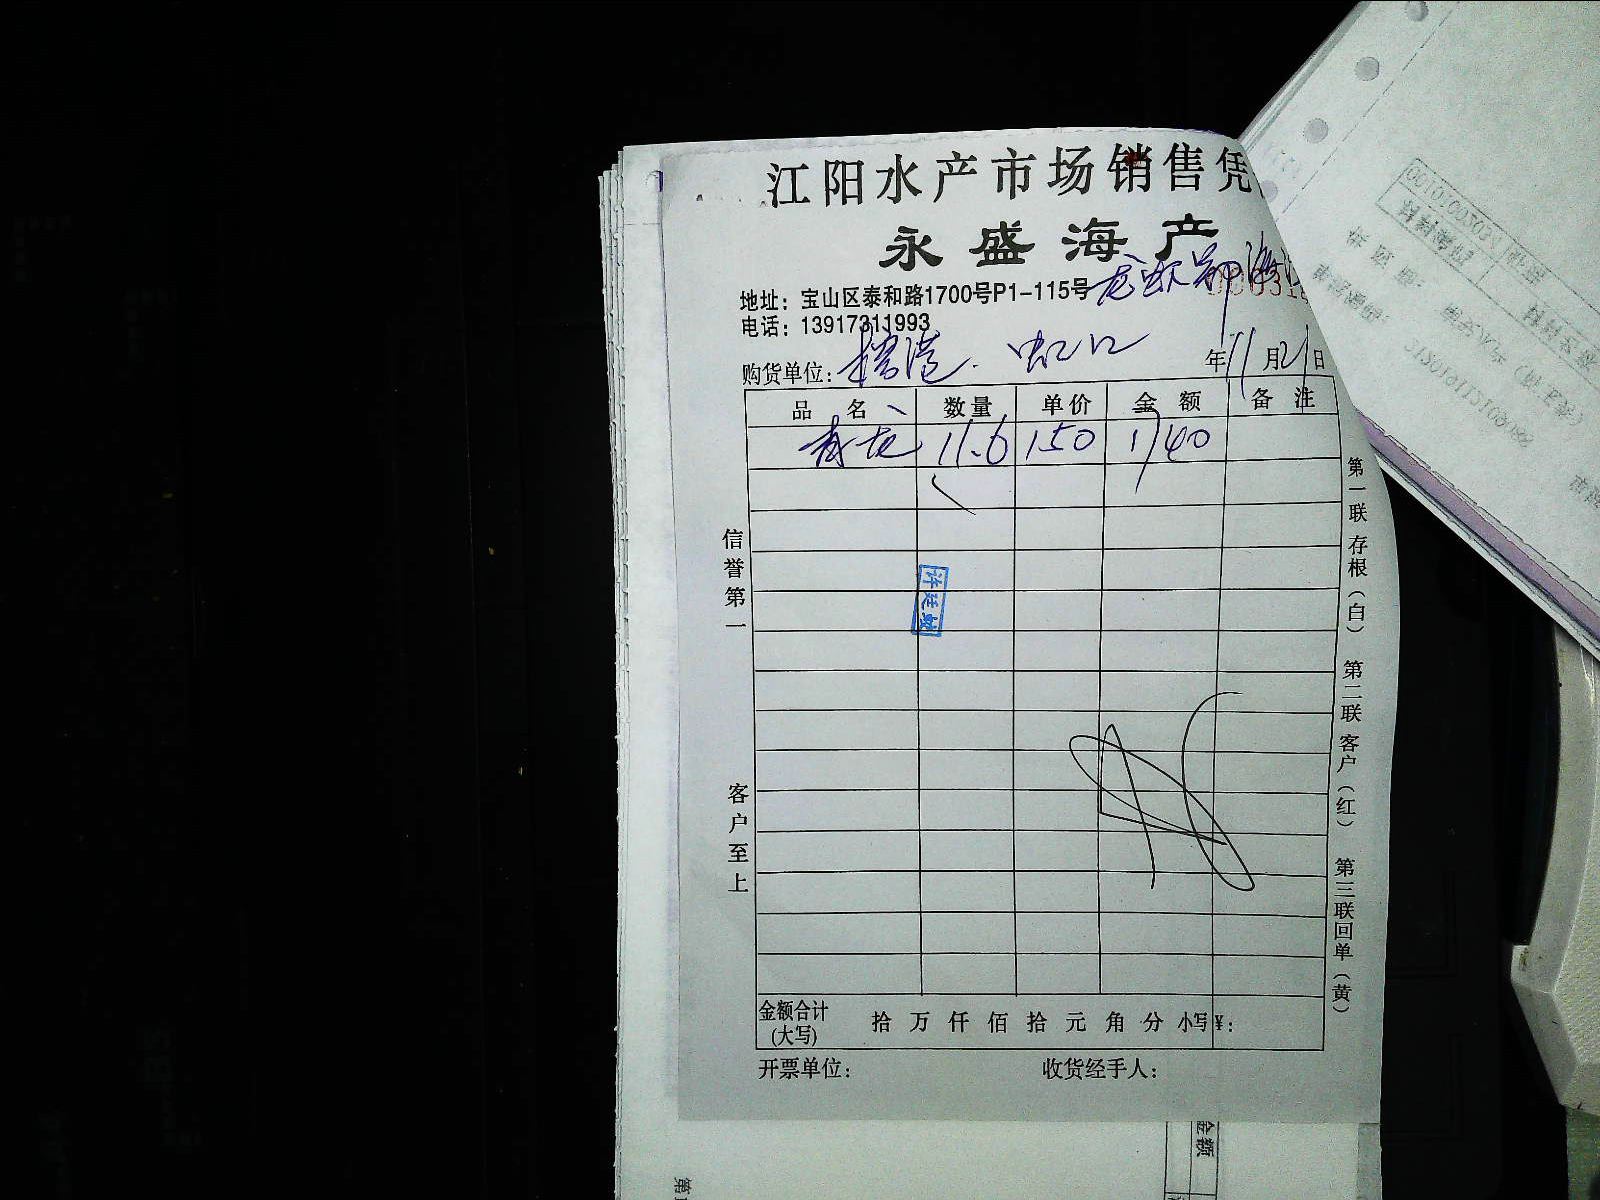 江阳水产市场销售凭
永盛海产
地址：宝山区泰和路1700号P1-115号
电话：13917311993
购货单位： 虹口 年11月21日
品名 数量 单价 金额 备注
青龙 11.6 150 1740
许廷
信誉第一
客户至上
第一联存根（白） 第二联客户（红） 第三联回单（黄）
金额合计(大写) 拾 万 仟 佰 拾 元 角 分 小写¥：
开票单位： 收货经手人：
金额